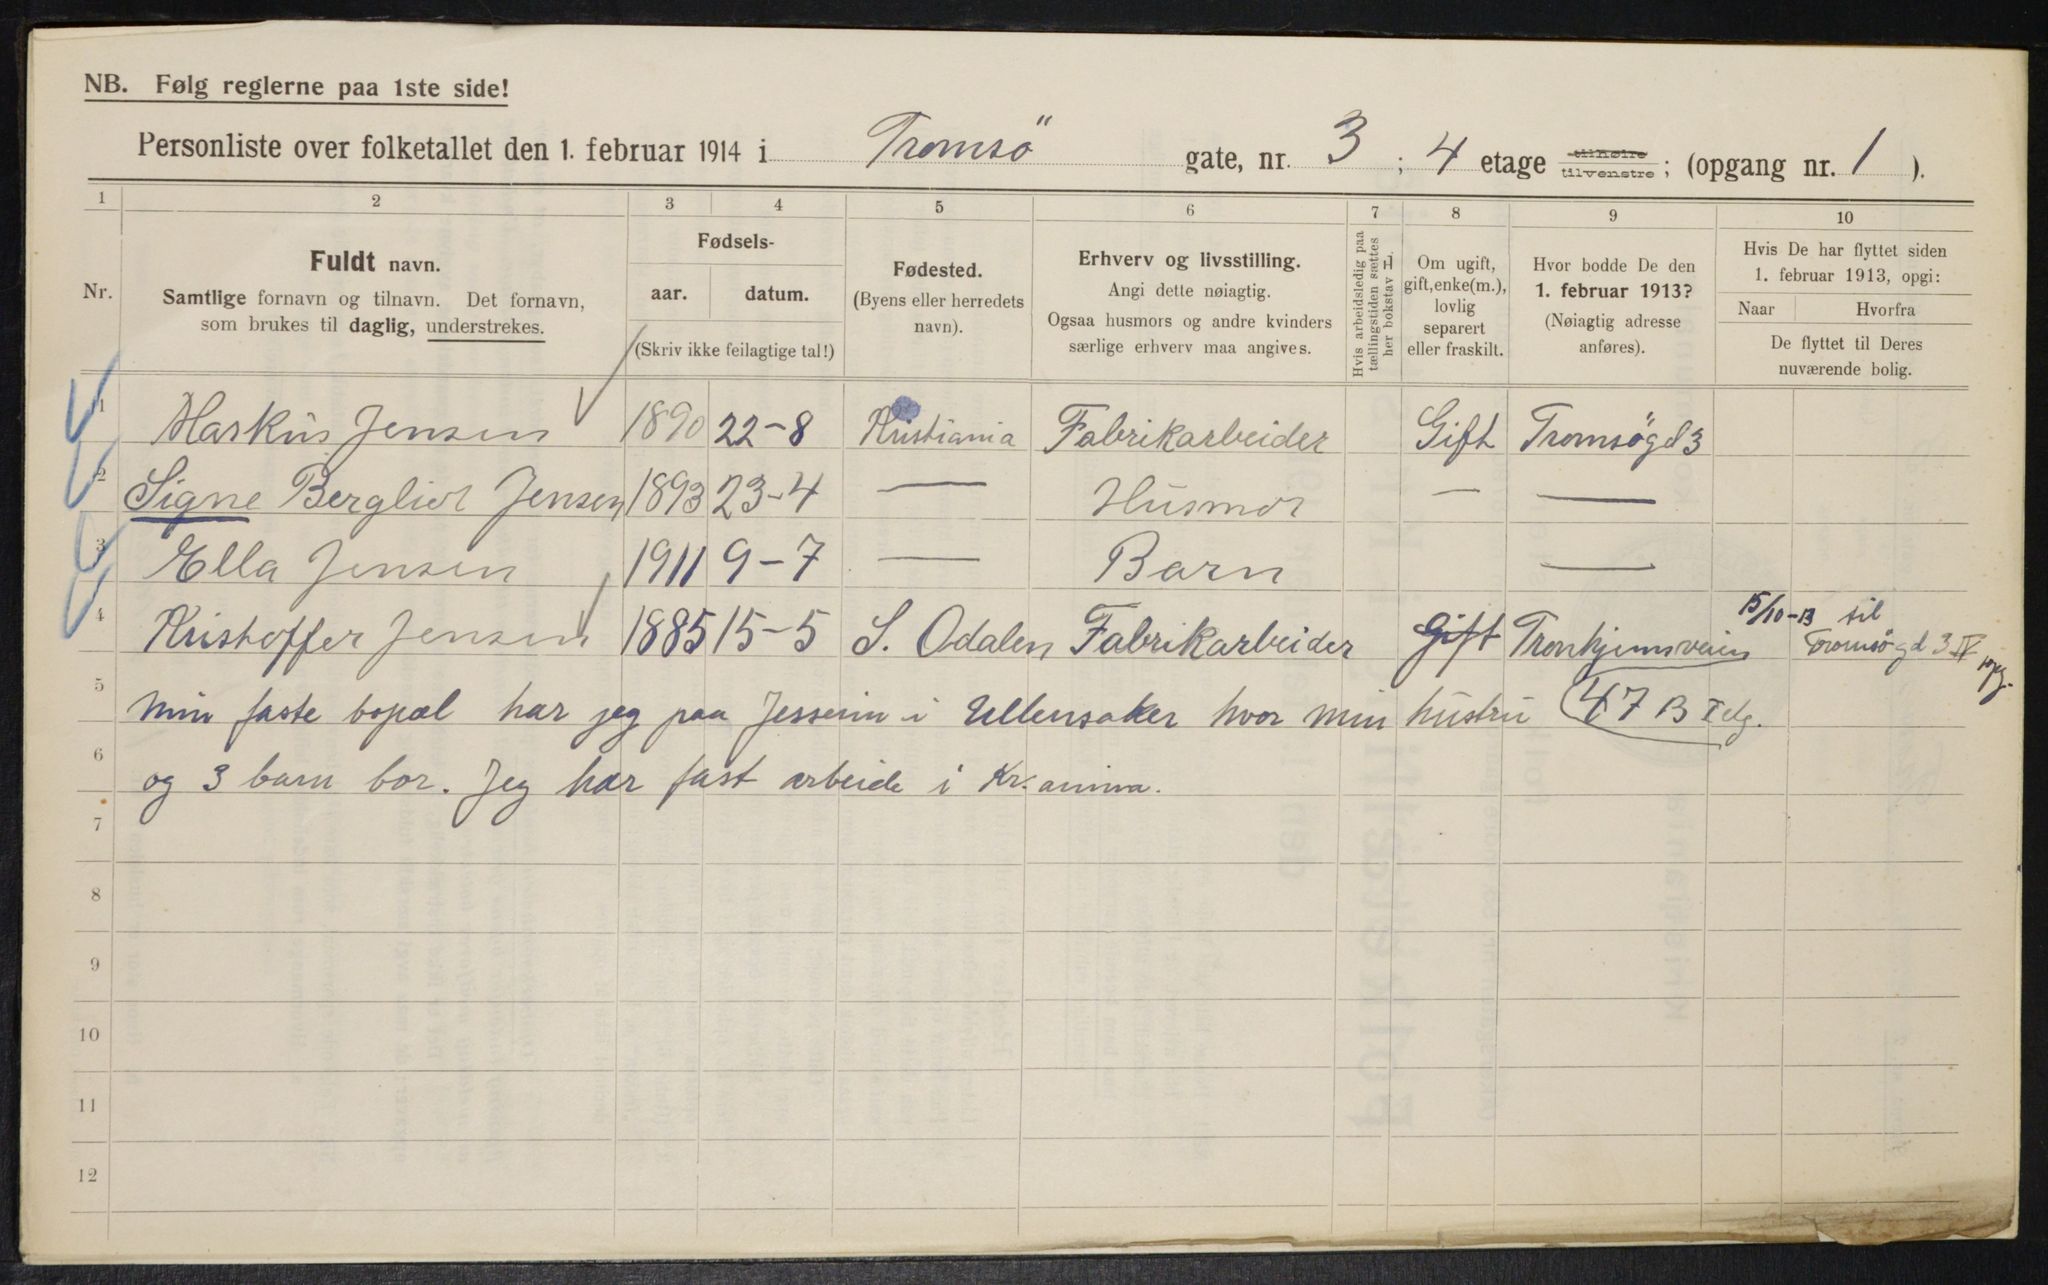 NB. Følg reglerne paa 1ste side!
Personliste over folketallet den 1. februar 1914 i Tromsö gate, nr. 3 ; 4 etage tilhøire tilvenstre ; (opgang nr. 1 ).
1 2 3 4 5 6 7 8 9 10
Nr.
Fuldt navn.
Samtlige fornavn og tilnavn. Det fornavn,
som brukes til daglig, understrekes.
Fødsels-
aar. datum.
(Skriv ikke feilagtige tal!)
Fødested.
(Byens eller herredets
navn).
Erhverv og livsstilling.
Angi dette nøiagtig.
Ogsaa husmors og andre kvinders
særlige erhverv maa angives.
Hvis arbeidsledig paa
tællingstiden sættes
her bokstav L
Om ugift,
gift, enke(m.),
lovlig
separert
eller fraskilt.
Hvor bodde De den
1. februar 1913?
(Nøiagtig adresse
anføres).
Hvis De har flyttet siden
1. februar 1913, opgi:
Naar Hvorfra
De flyttet til Deres
nuværende bolig.
1 Markus Jensen 1890 22-8 Kristiania Fabrikarbeider Gift Tromsögd 3
2 Signe Bergliot Jensen 1893 23-4 — Husmor — —
3 Ella Jensen 1911 9-7 — Barn —
4 Kristoffer Jensen 1885 15-5 S. Odalen Fabrikarbeider Gift Tronhjemsveien 15/10-13 til Tromsøgd 3 IV
5 Min faste bopæl har jeg paa Jessheim i Ullensaker hvor min hustru 47 B I
6 og 3 barn bor. Jeg har fast arbeide i Kr.ania.
7
8
9
10
11
12